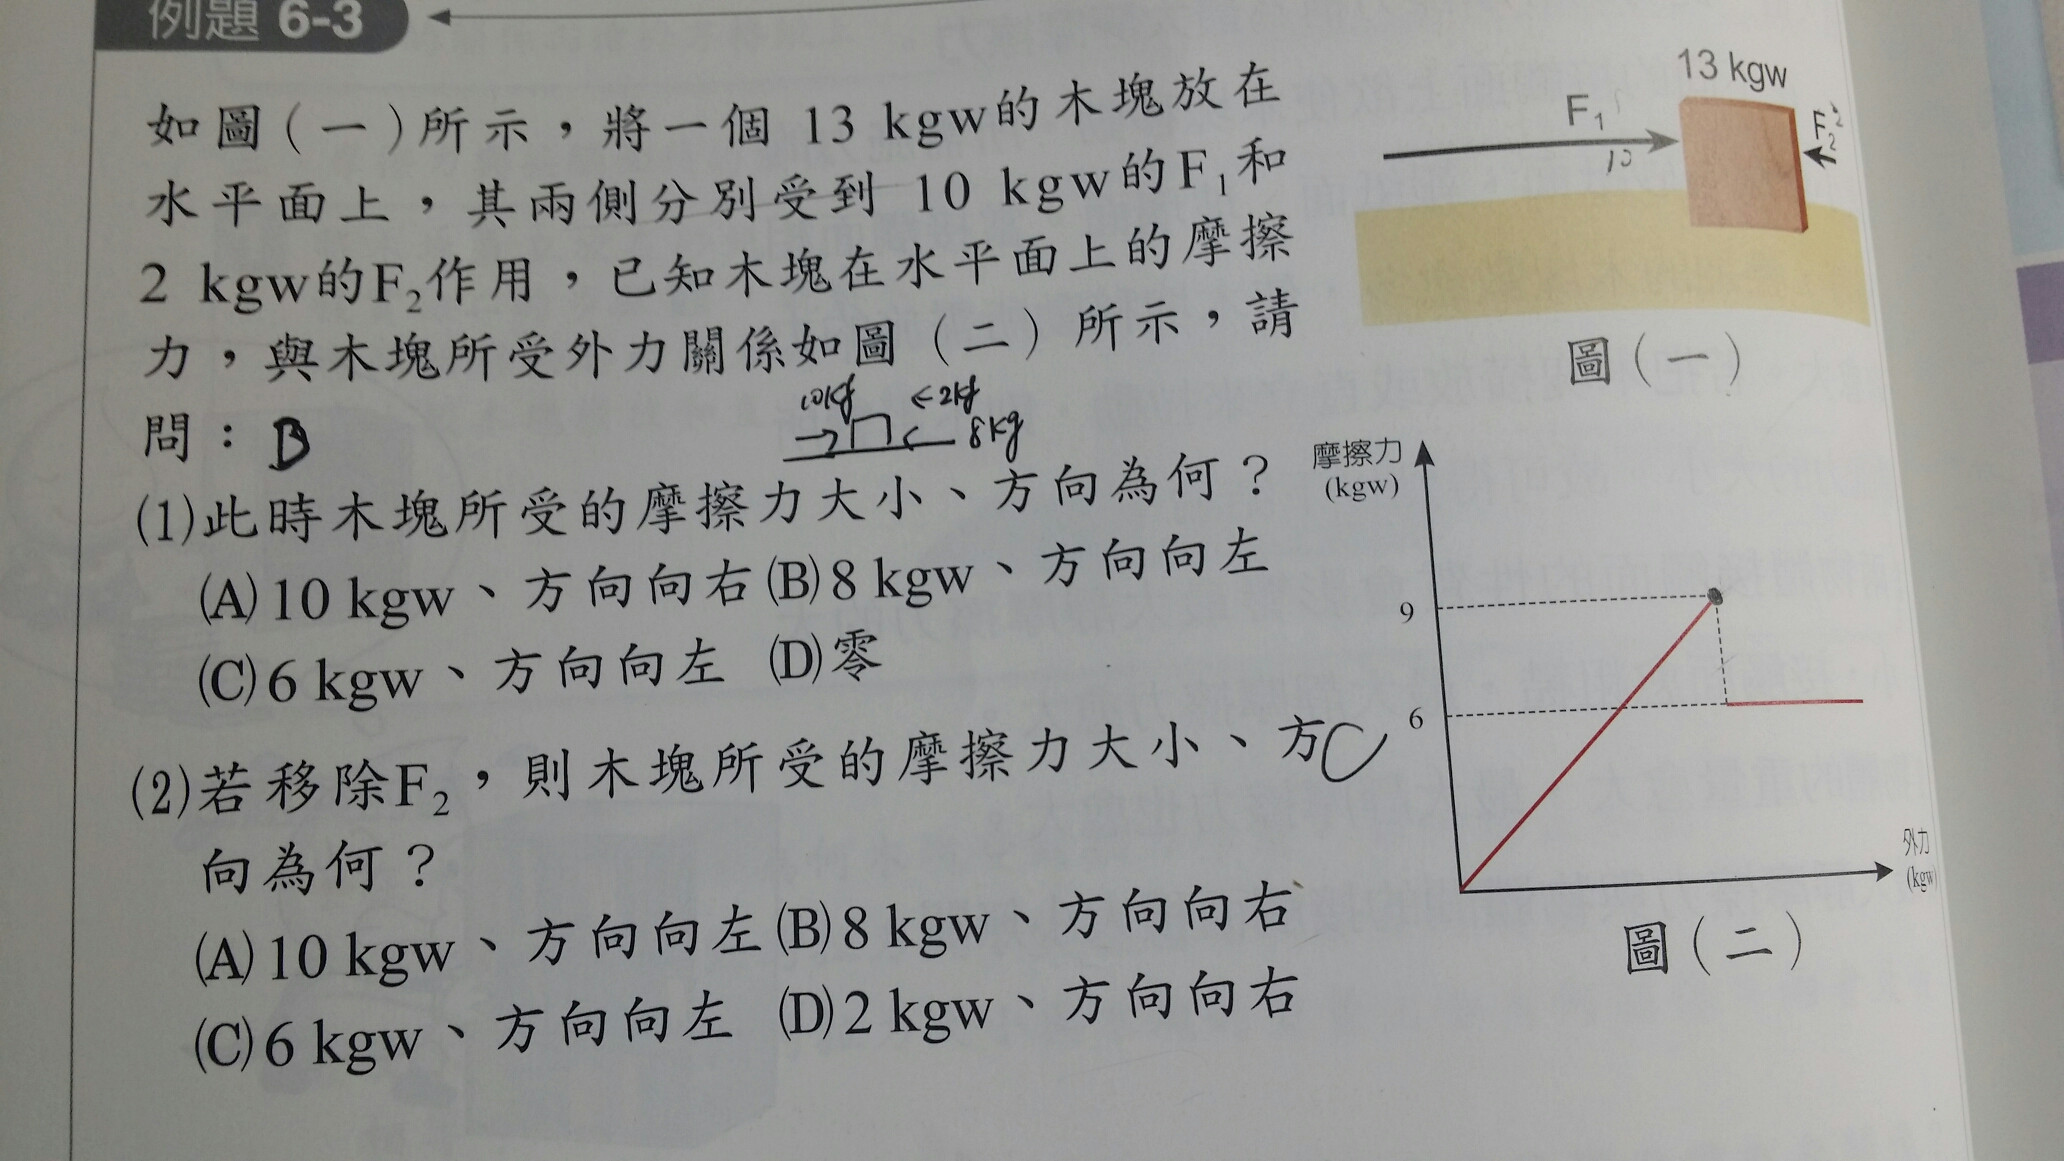 例題 6-3
如圖(一)所示，將一個 13 kgw的木塊放在
水平面上，其兩側分別受到 10 kgw的F₁和
2 kgw的F₂作用，已知木塊在水平面上的摩擦
力，與木塊所受外力關係如圖(二)所示，請
問： B
10kg ←2kg
8kg
(1)此時木塊所受的摩擦力大小、方向為何？
(A)10 kgw、方向向右(B)8 kgw、方向向左
(C)6 kgw、方向向左 (D)零
(2)若移除F₂，則木塊所受的摩擦力大小、方 C
向為何？
(A)10 kgw、方向向左(B)8 kgw、方向向右
(C)6 kgw、方向向左 (D)2 kgw、方向向右
13 kgw
F₁
10
F₂ 2
圖(一)
摩擦力
(kgw)
9
6
外力
(kgw)
圖(二)